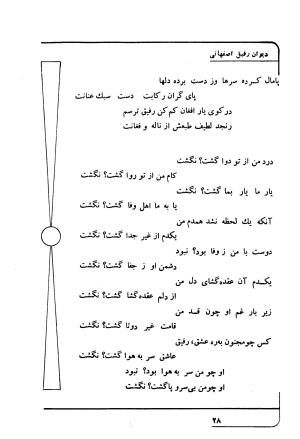 دیوان رفیق اصفهانی
پامال کرده سرها وز دست برده دلها
پای گران رکابت دست سبك عنانت
در کوی یار افغان کم کن رفیق ترسم
رنجد لطیف طبعش از ناله و فغانت
درد من از تو دوا گشت؟ نگشت
کام من از تو روا گشت؟ نگشت
یار ما یار بما گشت؟ نگشت
یا به ما اهل وفا گشت؟ نگشت
آنکه یك لحظه نشد همدم من
یکدم از غیر جدا گشت؟ نگشت
دوست با من ز وفا بود؟ نبود
دشمن او ز جفا گشت؟ نگشت
یکدم آن عقده‌گشای دل من
از دلم عقده‌گشا گشت؟ نگشت
زیر بار غم او چون قد من
قامت غیر دوتا گشت؟ نگشت
کس چو مجنون به‌ره عشق، رفیق
عاشق سر به هوا گشت؟ نگشت
او چو من سر به هوا بود؟ نبود
او چو من بی‌سر و پا گشت؟ نگشت
۲۸